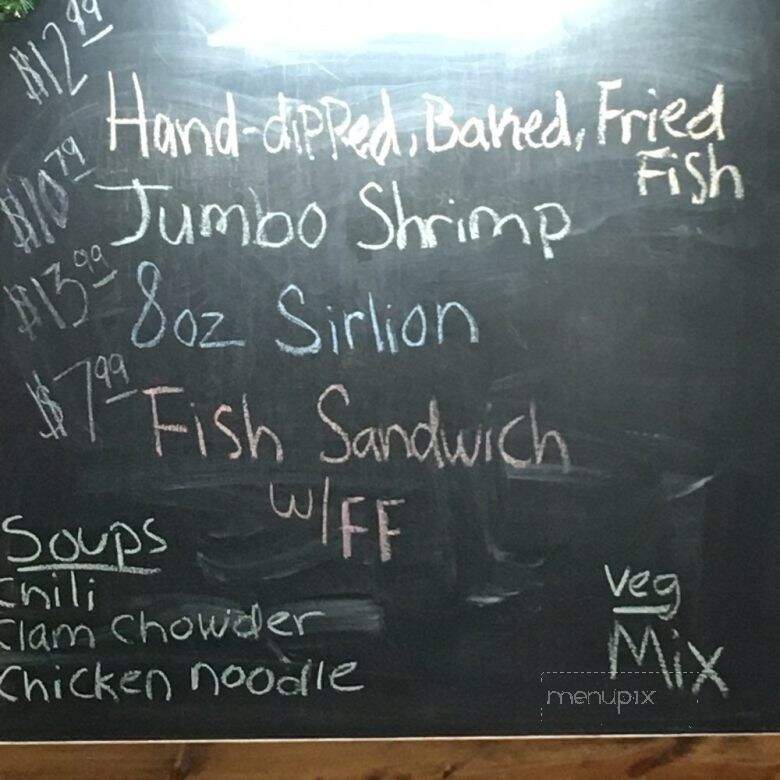 $12.99 Hand-dipped, Baked, Fried
Fish
$10.79 Jumbo Shrimp
$13.99 8oz Sirlion
$7.99 Fish Sandwich
w/FF
Soups
Chili
Clam Chowder
Chicken noodle
Veg
Mix
menupix